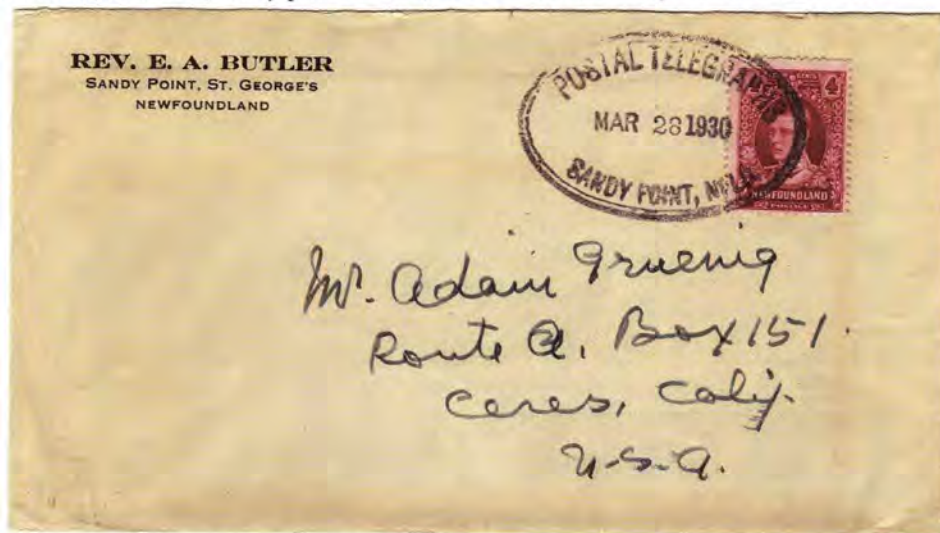 REV. E. A. BUTLER
SANDY POINT, ST. GEORGE'S
NEWFOUNDLAND
POSTAL TELEGRAPHS
MAR 28 1930
SANDY POINT, NFLD
4 CENTS 4
NEWFOUNDLAND
Mr. Adam Gruenig
Route A, Box 151.
Ceres, Calif.
U.S.A.